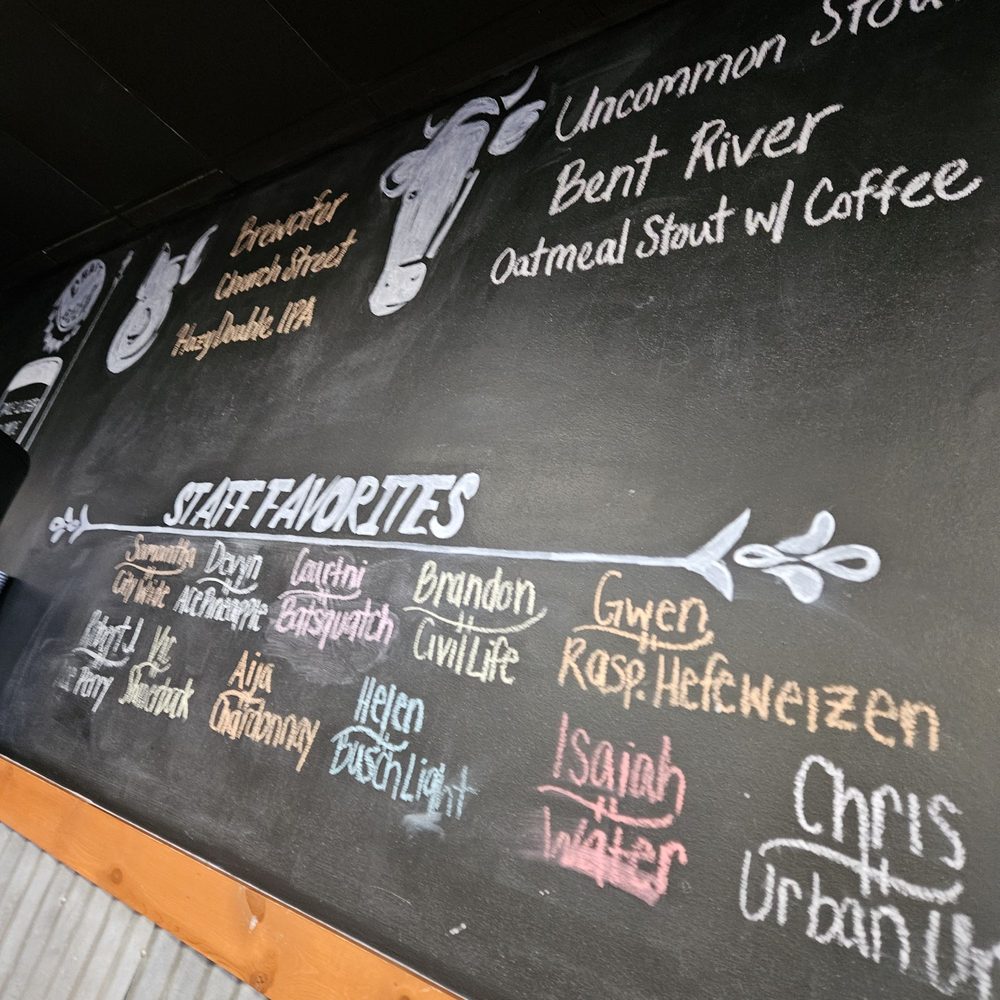 Uncommon Stou
Bent River
Oatmeal Stout w/ Coffee
Brewafer
Church Street
Hazy Double IPA
STAFF FAVORITES
Samantha
City Wide
Devyn
Ace Pineapple
Courtni
Batsquatch
Brandon
Civil Life
Gwen
Rasp. Hefeweizen
Robert J.
Perry
Vic
Aija
Chardonnay
Helen
Busch Light
Isaiah
Water
Chris
Urban